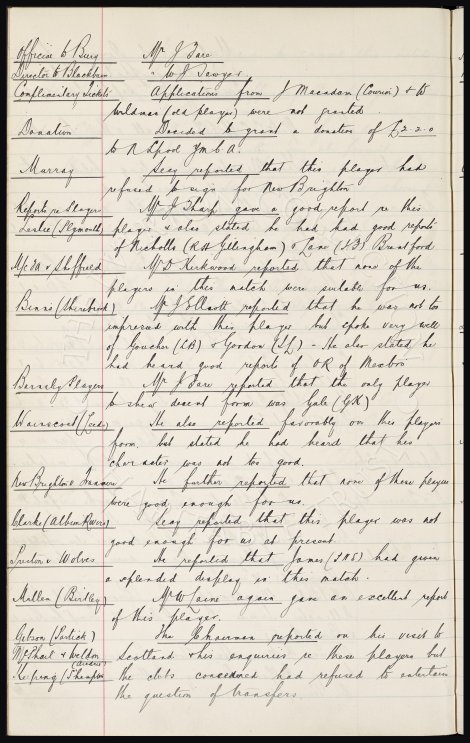 Official to Bury Mr J Fare
Director to Blackburn " W J Sawyer
Complimentary Tickets Applications from J Macadam (Courier) & W
Wildman (old player) were not granted.
Donation Decided to grant a donation of £2-2-0
to N L'pool Y.M.C.A.
Murray Secy reported that this player had
refused to sign for New Brighton
Reports re Players Mr J Sharp gave a good report re this
Leslie (Plymouth) player & also stated he had had good reports
of Nicholls (RH Gillingham) & Lane (IF) Brentford
Mr D Kirkwood reported that none of the
players in this match were suitable for us.
Binns (Shirebrook) Mr J Elliott reported that he was not too
impressed with this player but spoke very well
of Goucher (LB) & Gordon (IL) - He also stated he
had heard good reports of OR of Mexbro'
Barnsley Players Mr J Fare reported that the only player
to shew decent form was Gale (GK)
Wainscoat (Leeds) He also reported favorably on this players
form, but stated he had heard that his
character was not too good.
New Brighton v Tranmere He further reported that none of these players
were good enough for us.
Clarke (Albion Rovers) Secy reported that this player was not
good enough for us at present
Preston v Wolves He reported that James had given
a splendid display in this match.
Mullen (Birtley) Mr W Caine again gave an excellent report
of this player.
Gibson (Partick) The Chairman reported on his visit to
McPhail & Weldon (Airdrie) Scotland & his enquiries re these players but
the clubs concerned had refused to entertain
the question of transfers